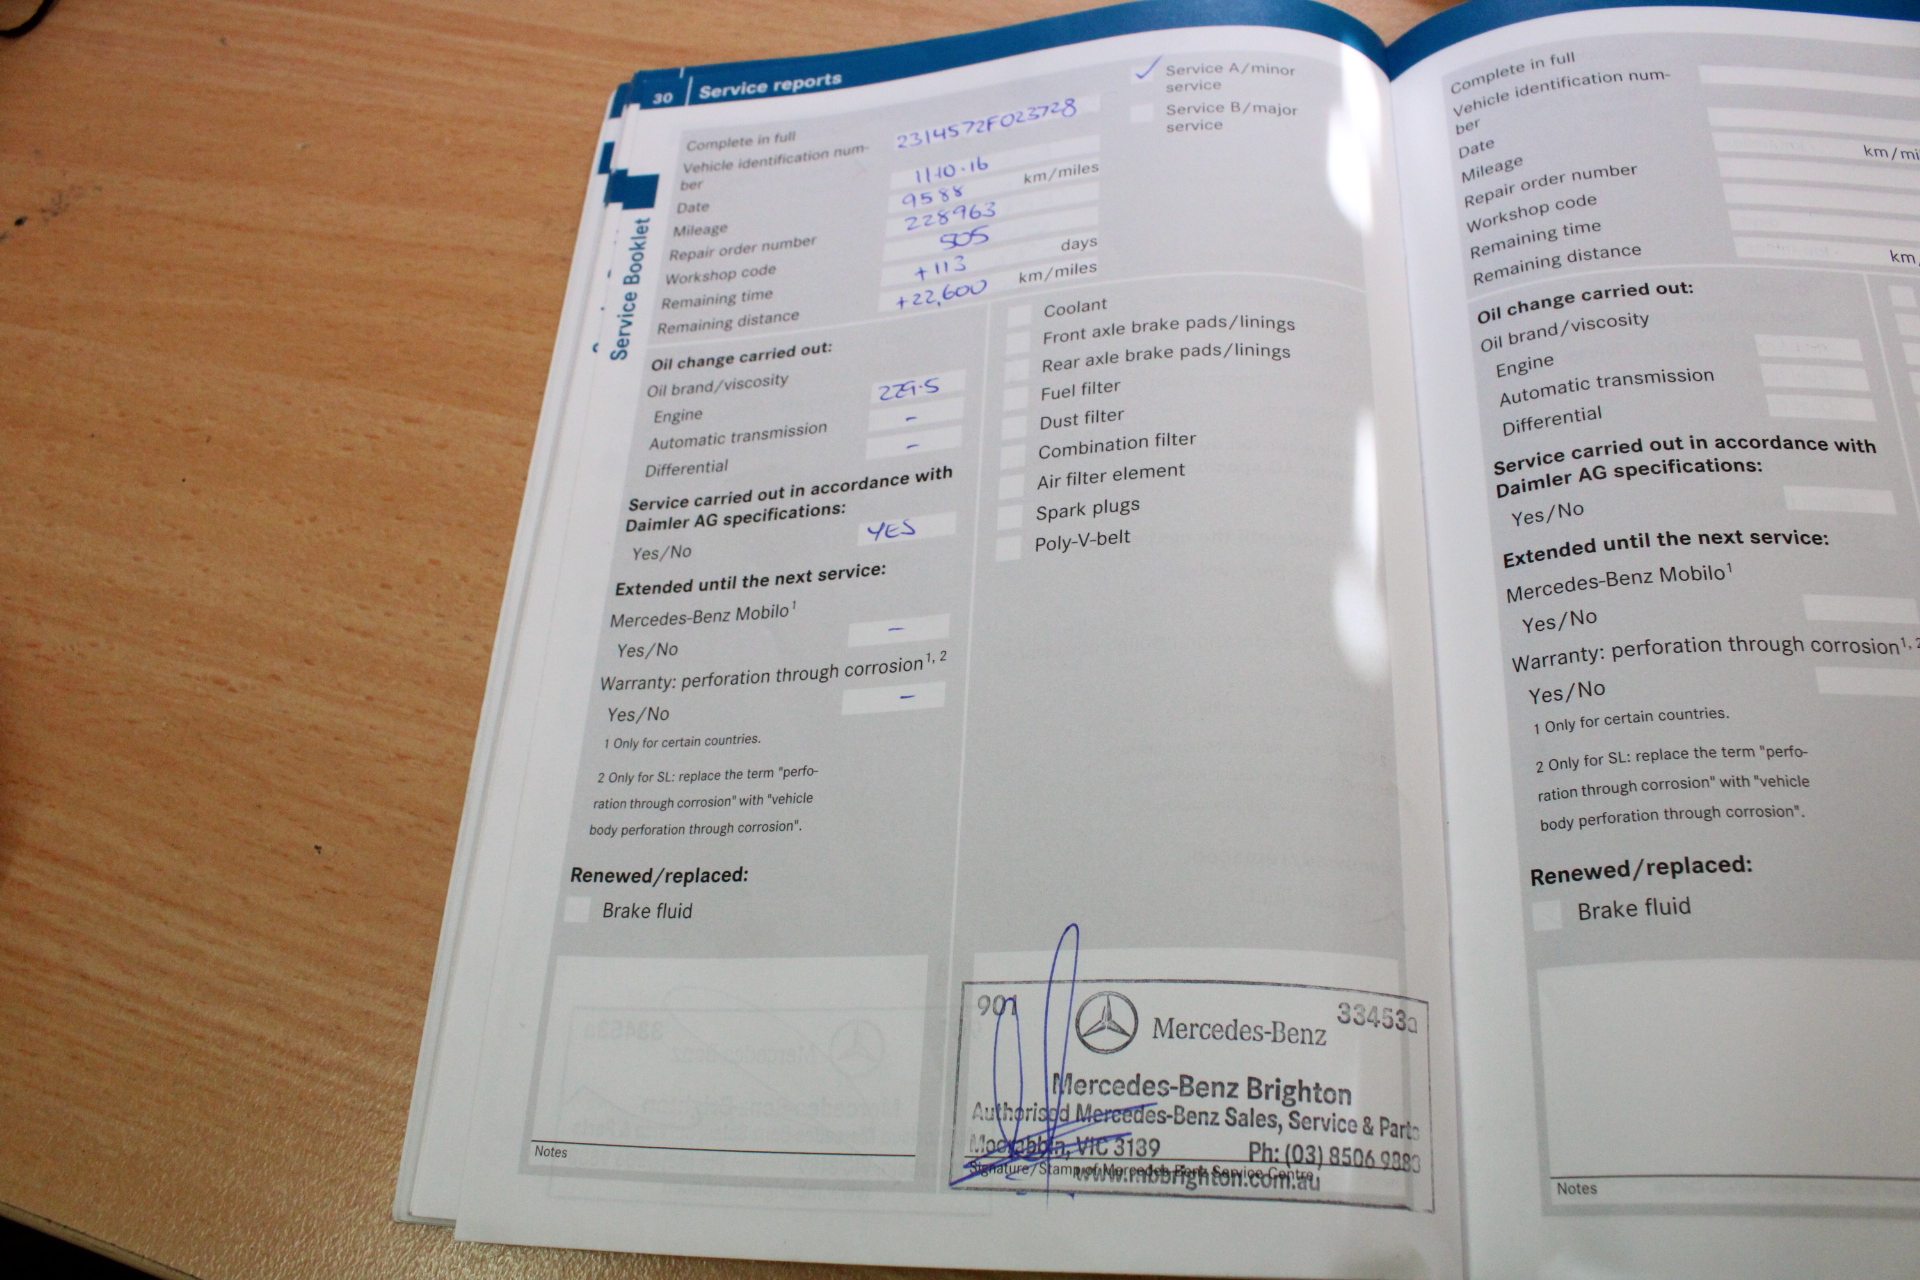 30 Service reports
Service Booklet
Complete in full
Vehicle identification num-
ber
2314572F023728
Date 11·10·16
Mileage 9588 km/miles
Repair order number 228963
Workshop code 505
Remaining time +113 days
Remaining distance +22,600 km/miles
✓ Service A/minor
service
Service B/major
service
Oil change carried out:
Oil brand/viscosity
Engine 229.5
Automatic transmission -
Differential -
Service carried out in accordance with
Daimler AG specifications:
Yes/No YES
Extended until the next service:
Mercedes-Benz Mobilo1
Yes/No -
Warranty: perforation through corrosion1, 2
Yes/No -
1 Only for certain countries.
2 Only for SL: replace the term "perfo-
ration through corrosion" with "vehicle
body perforation through corrosion".
Renewed/replaced:
Brake fluid
Coolant
Front axle brake pads/linings
Rear axle brake pads/linings
Fuel filter
Dust filter
Combination filter
Air filter element
Spark plugs
Poly-V-belt
Notes
901 Mercedes-Benz 33453a
Mercedes-Benz Brighton
Authorised Mercedes-Benz Sales, Service & Parts
Moorabbin, VIC 3139 Ph: (03) 8506 9883
Signature/Stamp of Mercedes-Benz Service Centre
www.mbbrighton.com.au
Complete in full
Vehicle identification num-
ber
Date
Mileage km/mi
Repair order number
Workshop code
Remaining time
Remaining distance km/
Oil change carried out:
Oil brand/viscosity
Engine
Automatic transmission
Differential
Service carried out in accordance with
Daimler AG specifications:
Yes/No
Extended until the next service:
Mercedes-Benz Mobilo1
Yes/No
Warranty: perforation through corrosion1, 2
Yes/No
1 Only for certain countries.
2 Only for SL: replace the term "perfo-
ration through corrosion" with "vehicle
body perforation through corrosion".
Renewed/replaced:
Brake fluid
Notes